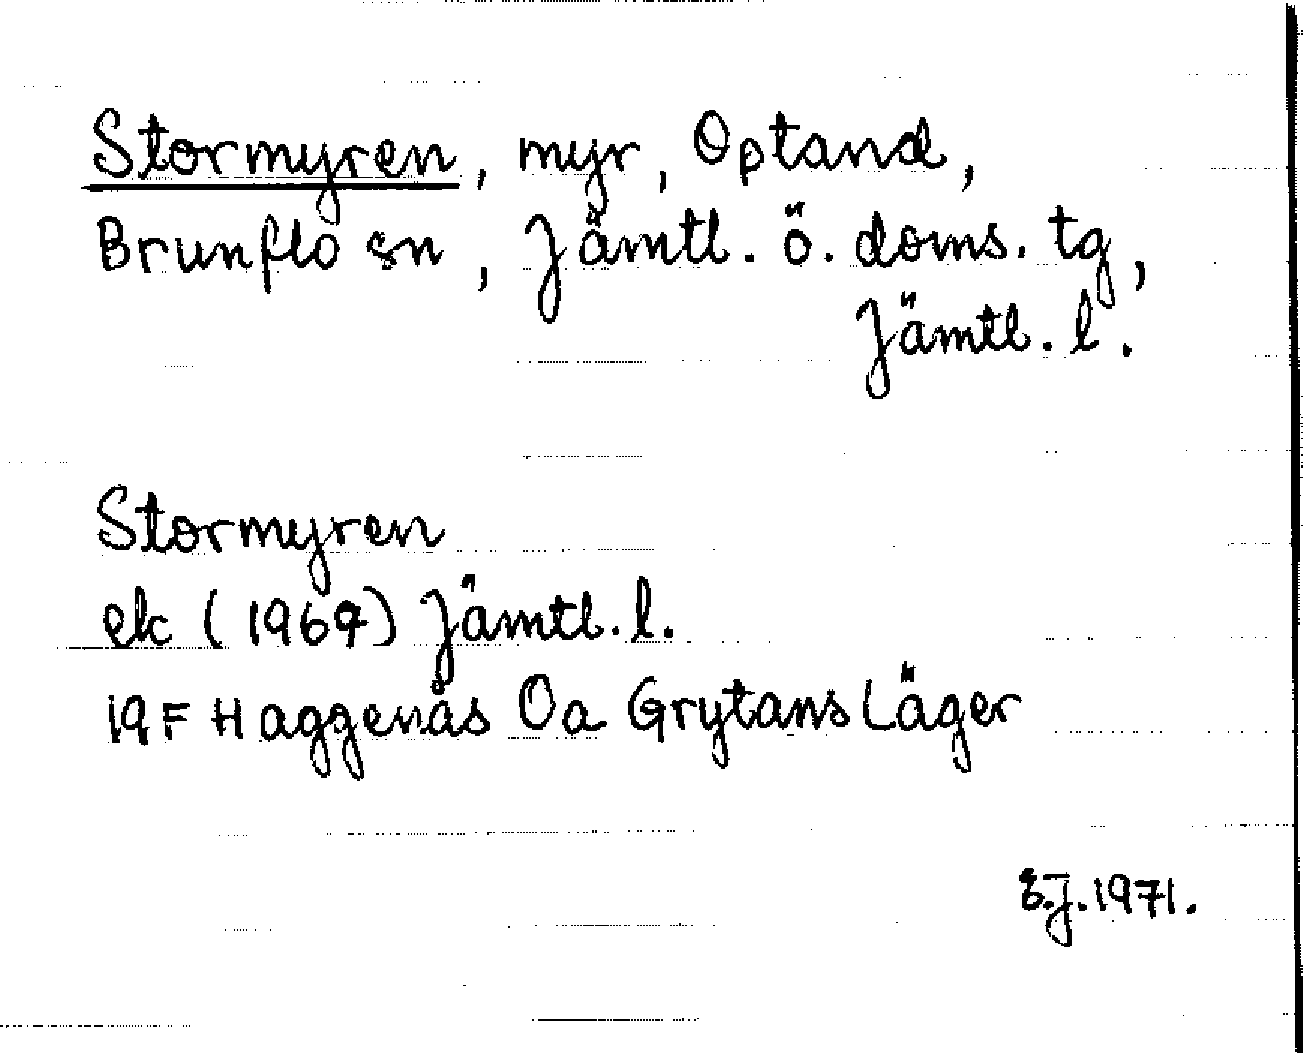 Stormyren, myr, Optand,
Brunflo sn, Jämtl. ö. doms. tg,
Jämtl. l.
Stormyren
ek (1969) Jämtl. l.
19F Haggenås Oa Grytans Läger
E.J. 1971.